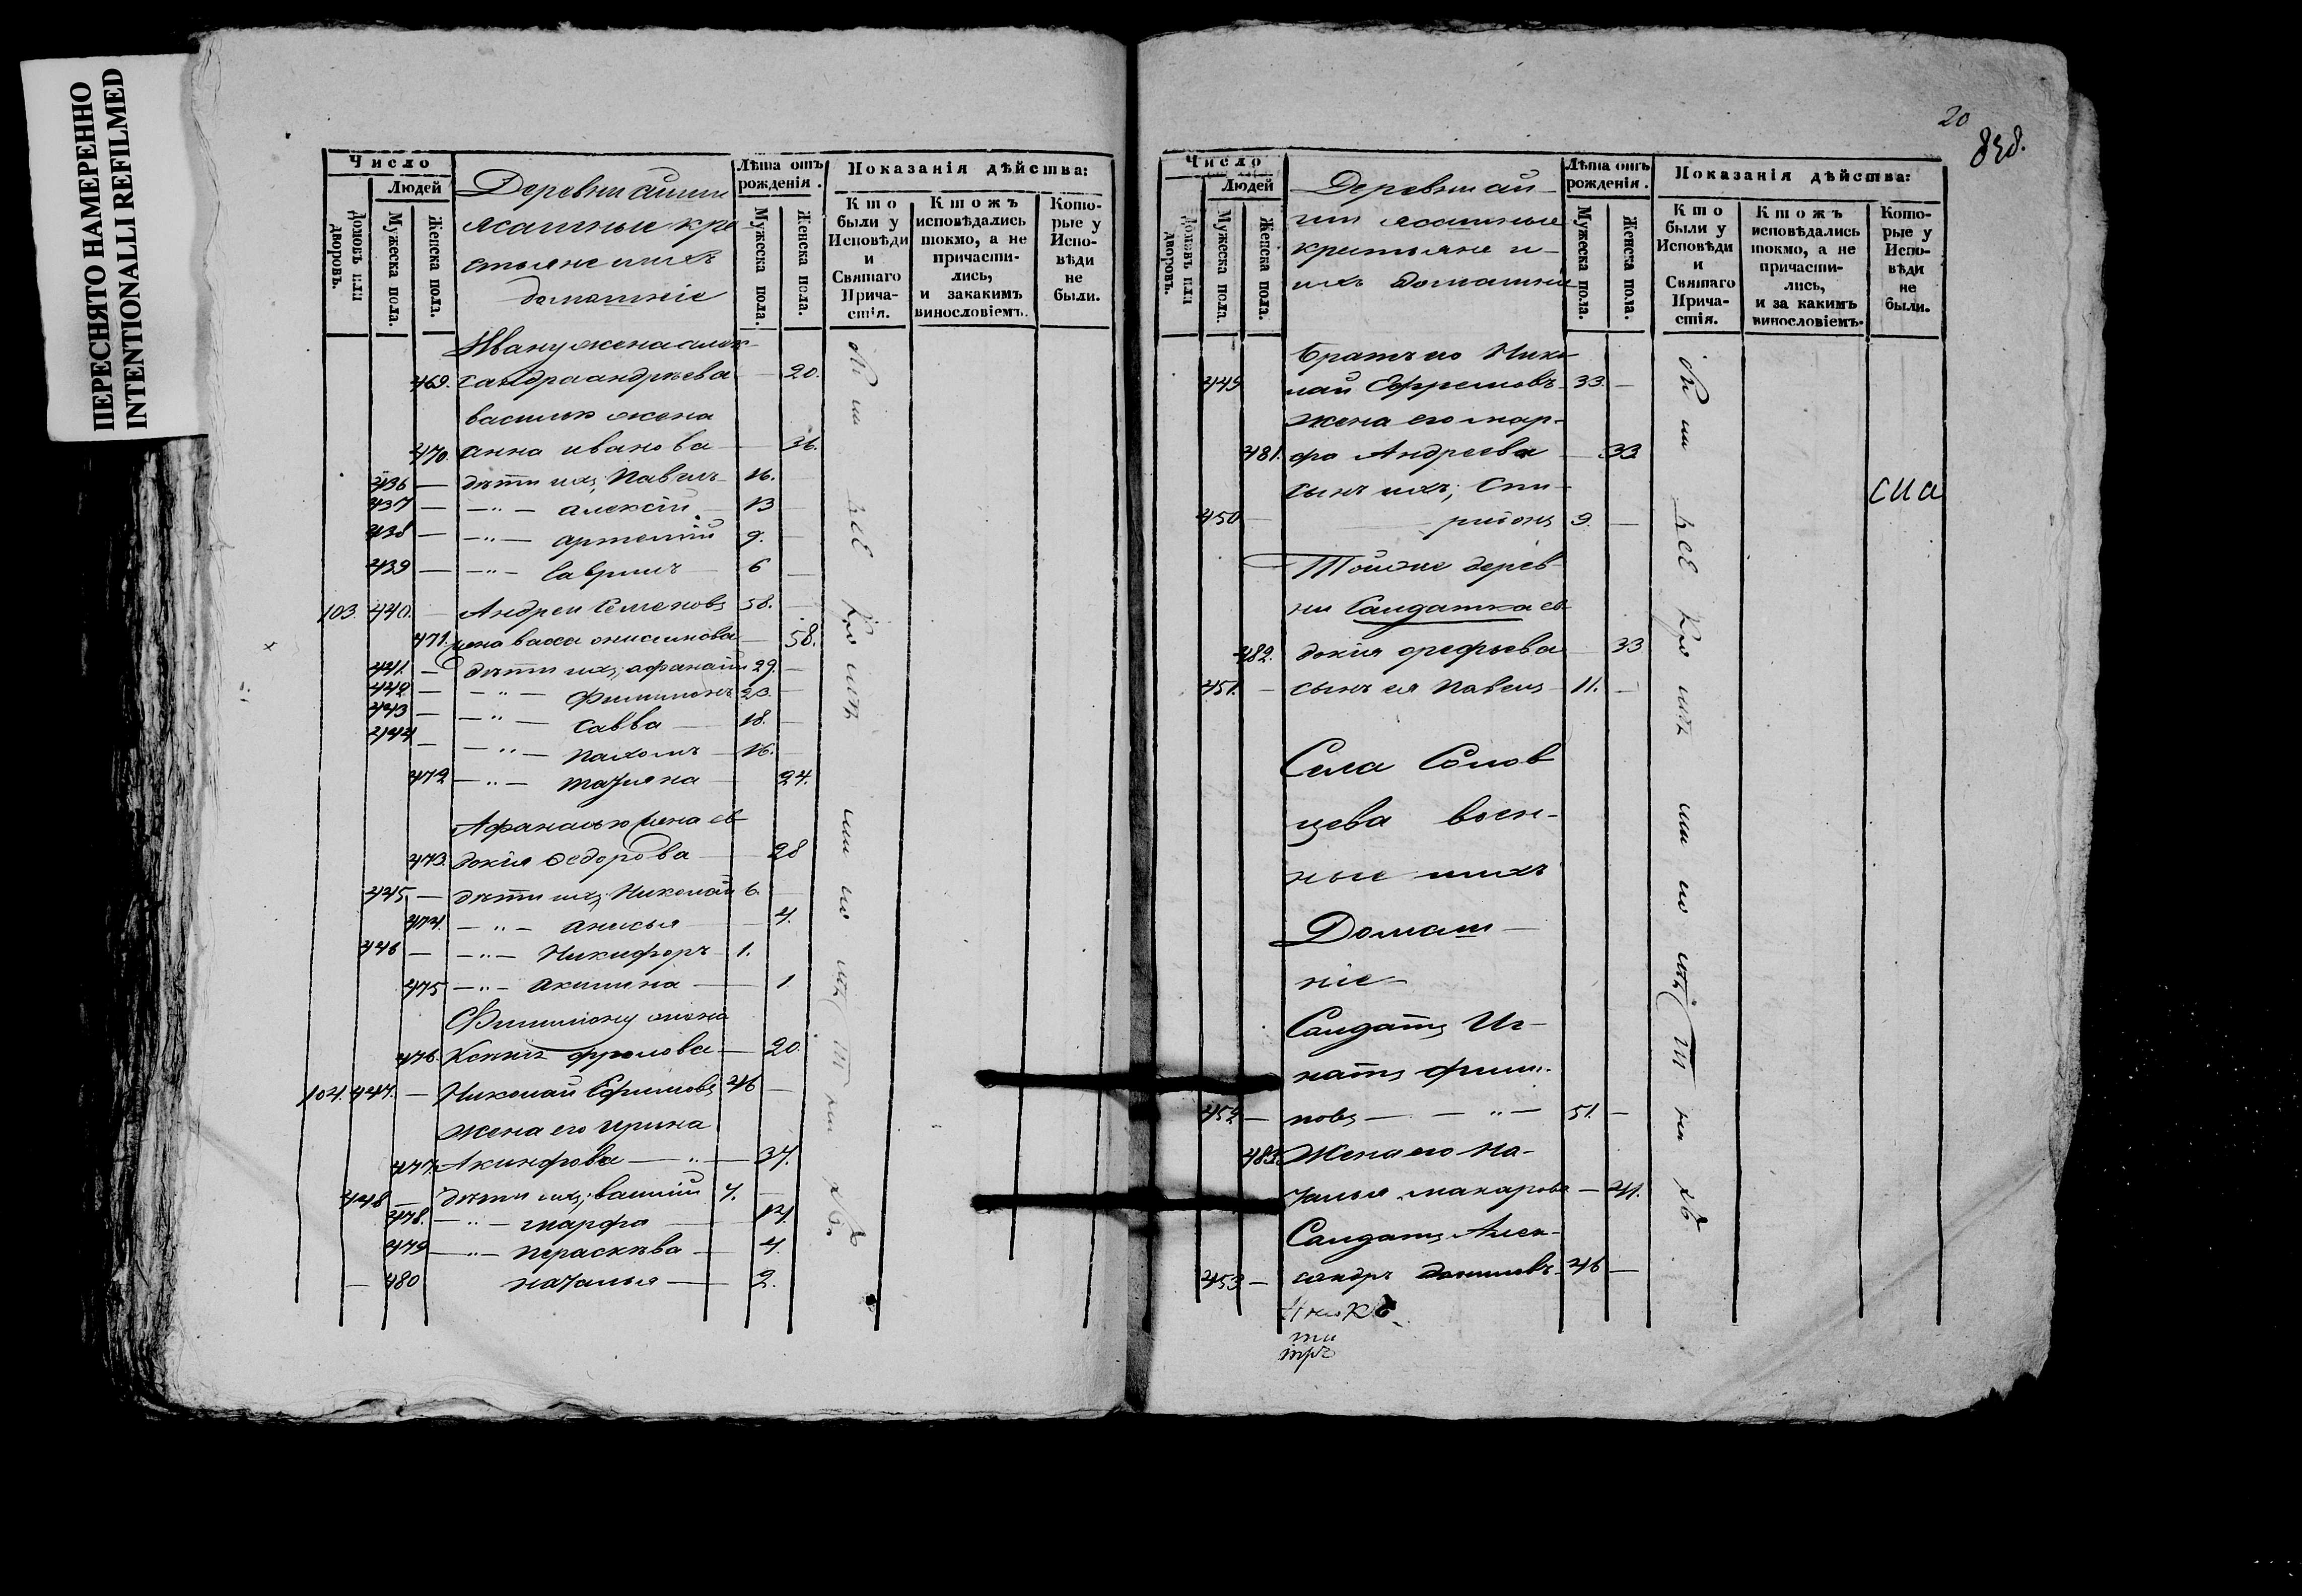 ПЕРЕСНЯТО НАМЕРЕННО
INTENTIONALLI REFILMED
Число
Людей
Домовъ или дворовъ.
Мужеска пола.
Женска пола.
Деревни
ясашные кре
стьяне и ихъ
домашніе
Лѣта отъ рожденія.
Мужеска пола.
Женска пола.
Показанія дѣйства:
Кто были у Исповѣди и Святаго Причастія.
Ктожъ исповѣдались токмо, а не причастились, и закакимъ винословіемъ.
Которые у Исповѣди не были.
Ивану жена алек
469. сандра андреева 20.
василью жена
470. анна иванова 36.
436 — дѣти ихъ; Павелъ 16.
437 — —"— алексѣй 13
438 — —"— артемій 9.
439 — —"— Гаврилъ 6
103. 440. Андреи Семеновъ 58.
471. жена васса онисимова 58.
441. — дѣти ихъ; афанасій 29.
442 — —"— Филимонъ 23.
443 — —"— савва 18.
444 — —"— пахомъ 16.
472 —"— татиана 24.
Афанасью жена ев
473. докія федорова 28
445 — дѣти ихъ; Николай 6.
474. —"— анисья 4.
446 — —"— Никифоръ 1.
475 —"— акилина 1
Филимону жена
476. Ксенія фролова 20.
104. 447. — Николай Ефримовъ 46
жена его ирина
477. Акинфова —"— 37.
448 — дѣти ихъ; василій 7.
478. —"— марфа 14.
479 —"— пераскѣва 4.
480 наталья 2.
20
838.
Число
Людей
Домовъ или дворовъ.
Мужеска пола.
Женска пола.
Деревни
ясашные
крестьяне и
ихъ домашніи
Лѣта отъ рожденія.
Мужеска пола.
Женска пола.
Показанія дѣйства:
Кто были у Исповѣди и Святаго Причастія.
Ктожъ исповѣдались токмо, а не причастились, и за какимъ винословіемъ.
Которые у Исповѣди не были.
братъ его Нико
449 лай Ефремовъ 33.
жена его мар-
481. фа Андреева 33
сынъ ихъ; Спи-
450 ридонъ 9.
Тойже дерев
ни Салдатка ев
482. докія арефьева 33
451. — сынъ ея Павелъ 11.
Села Солов
цева воен-
ные и ихъ
Домаш
ніе
Салдатъ Иг-
натъ фили-
452 — повъ — —"— 51. —
483. Жена его На-
талья макарова — 41.
Салдатъ Алек-
453 — сандръ даниловъ 46 —